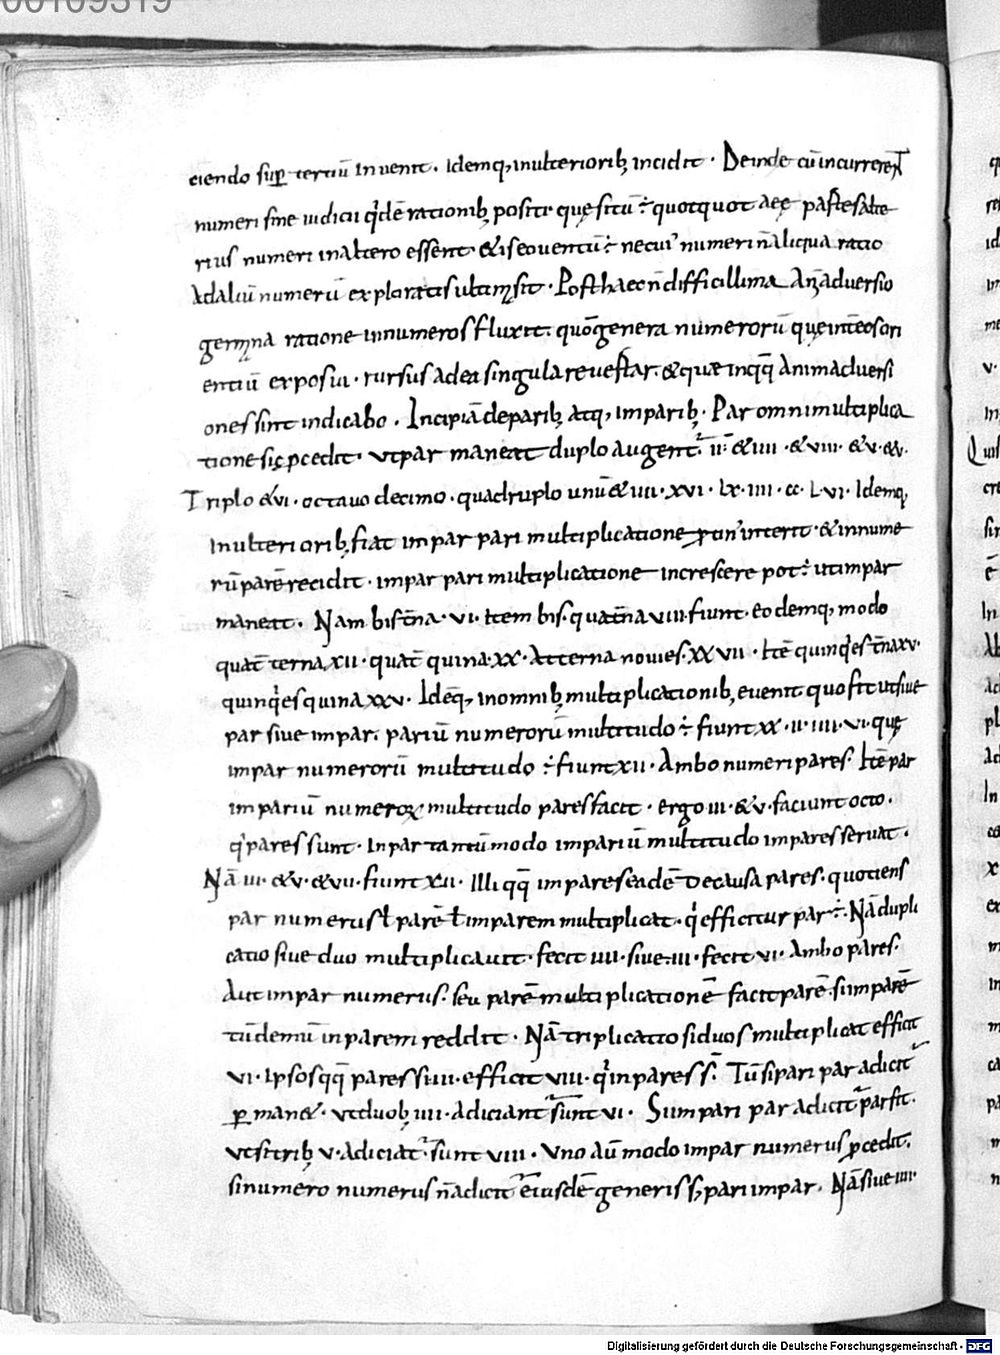 00109319
ciendo sup̄ tertiū invenit. Idemq; inulteriorib; incidit. Deinde cū incurrerent
numeri sine iudicii q'dē rationib; positi quę sitū ÷ quotquot aeę partes alte
rius numeri inaltero essent
Adaliū numerū explorati Posthaec n̄ difficillima
gemina ratione innumeros fluxit. quō genera numerorū quę
entiū exposui. rursus adea singula revertar. & quae inq̄q̄ animadversi
ones sint indicabo. Incipiā deparib; atq; imparib;. Par omni multiplica
tione sic p̄cedit. utpar maneat duplo augent̄. ii. & iiii. & viii. & v. &v.
Triplo &vi. octavo decimo. quadruplo unū & iiii. xvi. lx. iiii. cc. l. vi. Idemq;
Inulteriorib; fiat impar pari multiplicatione & innume
rū parē recidit. impar pari multiplicatione increscere pot÷ utimpar
maneat. Nam bis t̄na. vi. Item bis. quat̄na viii. fiunt. Eodemq; modo
quat̄ terna, xii. quat̄ quina. xx. At terna novies. xxvii. Itē quinq'es t̄na xv.
quinq'es quina xxv. Idēq; inomnib; multiplicationib; evenit quo fit utsive
par sive impar. pariū numerorū multitudo ÷ fiunt xx. ii. iiii. vi. quę
impar numerorū multitudo ÷ fiunt xii. Ambo numeri pares. Itē par
impariū numeroꝝ multitudo pares facit. ergo iii. & v. faciunt octo.
q' pares sunt. Inpar tantū modo impariū multitudo impares servat.
Nā iii. & v. & vii. fiunt xii. Illi q̄q̄ impares eadē decausa pares. quotiens
par numerus ł parē ł imparem multiplicat. q' efficitur par ÷. Nā dupli
catio sive duo multiplicavit. fecit iiii. sive. iii. fecit vi. Ambo pares.
Aut impar numerus. seu parē multiplicationē facit parē. siimparē
tūdemū inparem reddit. Nā triplicatio siduos multiplicat efficit
vi. Ipsosq̄q̄ pares siiii. efficit viii. q' inpares s̄. Tū sipari par adicit̄
ꝑ man&. utduob; iiii. adiciant̄ sunt vi. Siimpari par adicit̄ par fit.
utsitrib; v. adiciat̄. sunt viii. Uno aū modo impar numerus p̄cedit.
sinumero numerus n̄ adicit̄ eiusdē generis s; pari impar. Nā sive iiii.
Digitalisierung gefördert durch die Deutsche Forschungsgemeinschaft - DFG